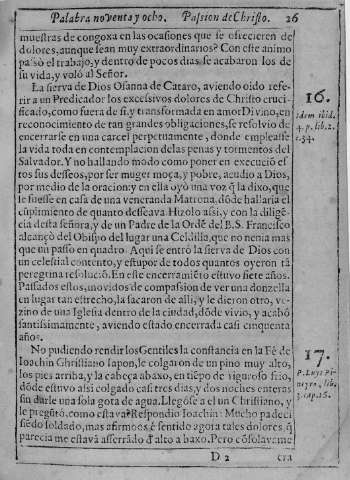 Palabra noventa y ocho. Passion de Christo. 26
muestras de congoxa en las ocasiones que se ofrecieren de
dolores, aunque sean muy extraordinarios? Con este animo
passò el trabajo, y dentro de pocos dias se acabaron los de
su vida, y volò al Señor.
La sierva de Dios Osanna de Cataro, aviendo oido refe-
rir a un Predicador los excessivos dolores de Christo cruci-
ficado, como fuera de si, y transformada en amor Divino, en
reconocimiento de tan grandes obligaciones, se resolvio de
encerrarse en una carcel perpetuamente, donde empleasse
la vida toda en contemplacion de las penas y tormentos del
Salvador. Y no hallando modo como poner en execuciō es
tos sus desseos, por ser muger moça, y pobre, acudio a Dios,
por medio de la oracion: y en ella oyò una voz q̄ la dixo, que
se fuesse en casa de una veneranda Matrona, dōde hallaria el
cūplimiento de quanto desseava. Hizolo assi, y con la diligē-
cia desta señora, y de un Padre de la Ordē del B. S. Francisco
alcançò del Obispo del lugar una Celdilla, que no tenia mas
que un passo en quadro. Aqui se entrò la sierva de Dios con
un celestial contento, y estupor de todos quantos oyeron tā
peregrina resoluciō. En este encerramiēto estuvo siete años.
Passados estos, movidos de compassion de ver una donzella
en lugar tan estrecho, la sacaron de alli, y le dieron otro, ve-
zino de una Iglesia dentro de la ciudad, dōde vivio, y acabò
santissimamente, aviendo estado encerrada casi cinquenta
años.
16.
Idem ibid.
4. p. lib. 2.
c. 34.
No pudiendo rendir los Gentiles la constancia en la Fè de
Ioachin Christiano Iapon, le colgaron de un pino muy alto,
los pies arriba, y la cabeça abaxo, en tiēpo de riguroso frio,
dōde estuvo assi colgado casi tres dias, y dos noches enteras
sin darle una sola gota de agua. Llegòse a el un Christiano, y
le pregūtò, como estava? Respondio Ioachin: Mucho padeci
siēdo soldado, mas afirmoos, ē sentido agora tales dolores, q̄
parecia me estavā asserrādo d'alto a baxo. Pero cōsolavame
17.
P. Luys Pi-
ñeyro, lib.
3. cap. 16.
D 2 cra